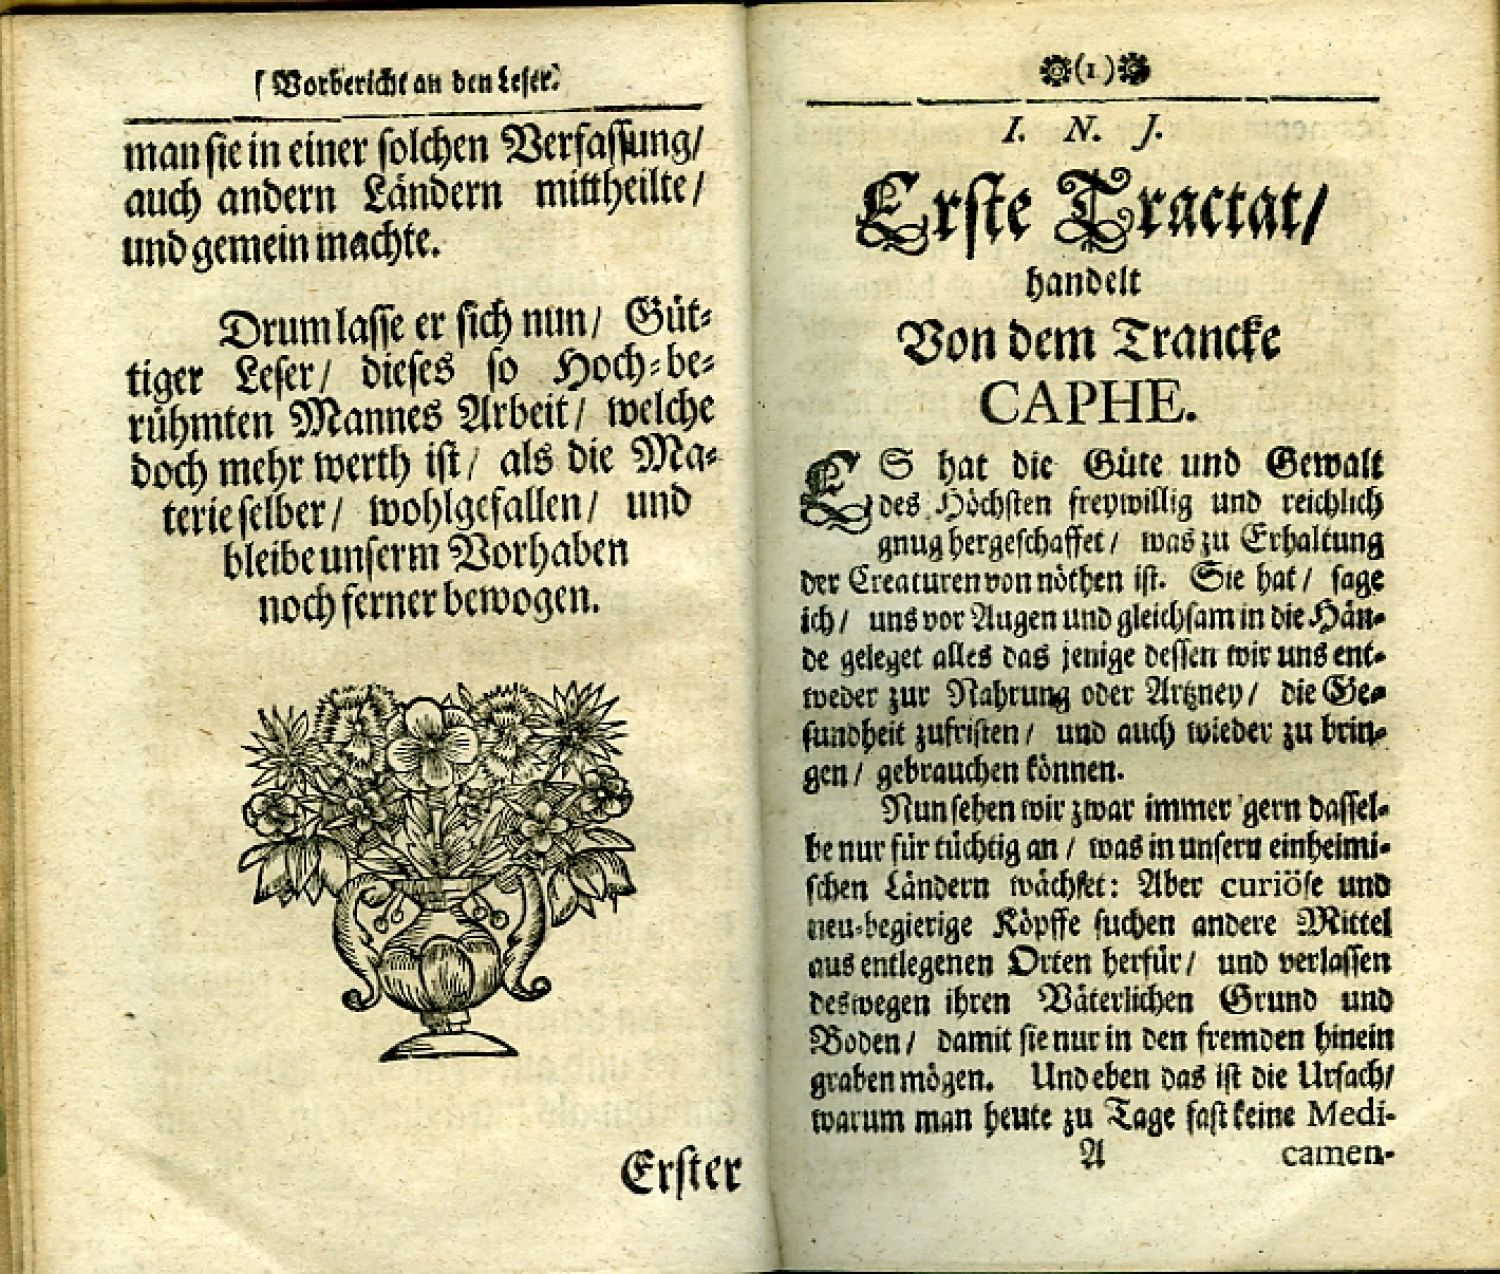 Vorbericht an den Leser.
man sie in einer solchen Verfassung/
auch andern Ländern mittheilte/
und gemein machte.
Drum lasse er sich nun/ Güt⸗
tiger Leser/ dieses so Hoch⸗be⸗
rühmten Mannes Arbeit/ welche
doch mehr werth ist/ als die Ma⸗
terie selber/ wohlgefallen/ und
bleibe unserm Vorhaben
noch ferner bewogen.
Erster
(1)
I. N. J.
Erste Tractat/
handelt
Von dem Trancke
CAPHE.
ES hat die Güte und Gewalt
des Höchsten freywillig und reichlich
gnug hergeschaffet/ was zu Erhaltung
der Creaturen von nöthen ist. Sie hat/ sage
ich/ uns vor Augen und gleichsam in die Hän⸗
de geleget alles das jenige dessen wir uns ent⸗
weder zur Nahrung oder Artzney/ die Ge⸗
sundheit zufristen/ und auch wieder zu brin⸗
gen/ gebrauchen können.
Nun sehen wir zwar immer gern dassel⸗
be nur für tüchtig an/ was in unsern einheimi⸗
schen Ländern wächset: Aber curiöse und
neu⸗begierige Köpffe suchen andere Mittel
aus entlegenen Orten herfür/ und verlassen
deswegen ihren Väterlichen Grund und
Boden/ damit sie nur in den fremden hinein
graben mögen. Und eben das ist die Ursach/
warum man heute zu Tage fast keine Medi-
A camen-